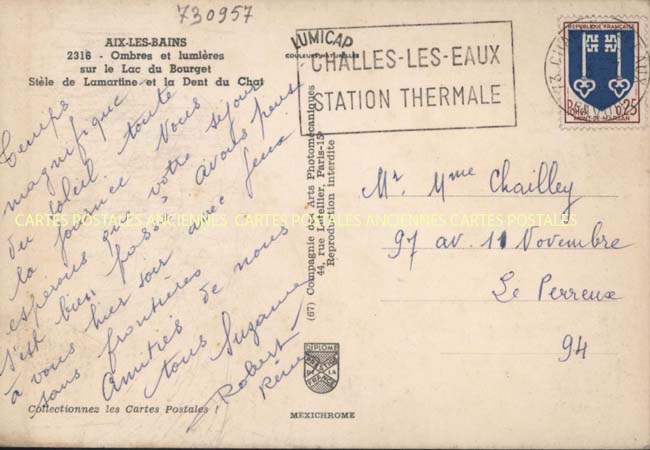 730957
AIX-LES-BAINS
2316 - Ombres et lumières
sur le Lac du Bourget
Stèle de Lamartine et la Dent du Chat
LUMICAP
COULEURS NATURELLES
CHALLES-LES-EAUX
STATION THERMALE
REPUBLIQUE FRANÇAISE
0,25
MONT-DE-MARSAN
Temps
magnifique
du soleil toute
la journée. Nous
esperons que votre séjour
s'est bien passé avons pensé
à vous hier soir avec Jeux
sans frontières
Amitiés de nous
tous Suzanne
Robert
Rémy
Mr Mme Chailley
97 av. 11 Novembre
Le Perreux
94
(67) Compagnie des Arts Photomécaniques
44, rue Letellier, Paris-15e
Reproduction interdite
DIPLOME
PRESTIGE
DE LA
FRANCE
Collectionnez les Cartes Postales !
MEXICHROME
CARTES POSTALES ANCIENNES CARTES POSTALES ANCIENNES CARTES POSTALES